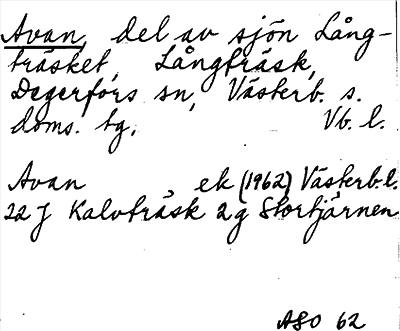 Avan, del av sjön Lång-
träsket, Långträsk,
Degerfors sn, Västerb. s.
doms. tg. Vb. l.
Avan, ek (1962) Västerb.l.
22 J Kalvträsk 2g Stortjärnen
ASO 62